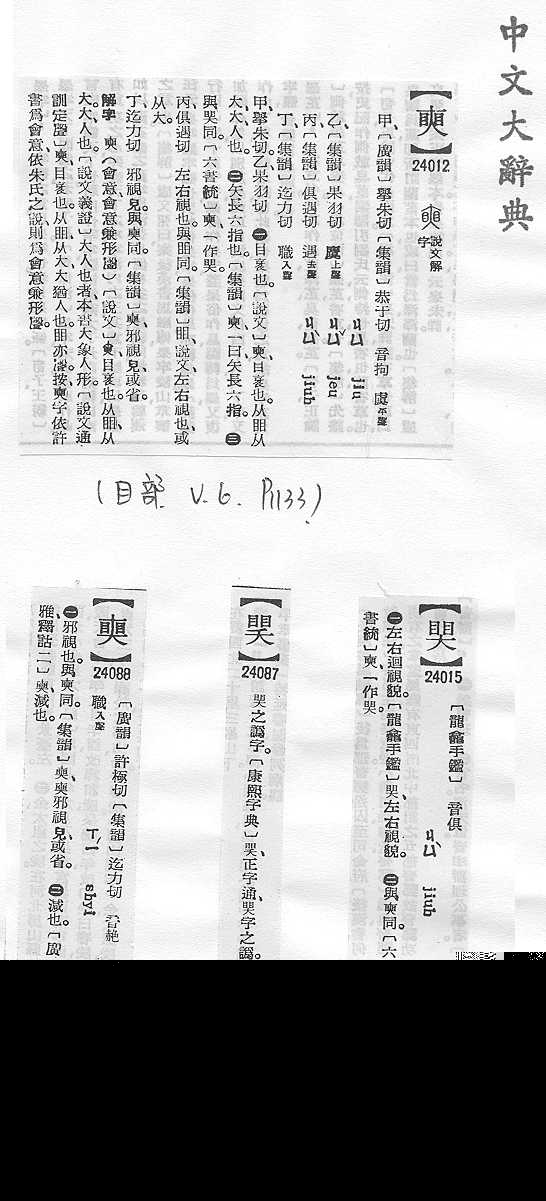 中文大辭典
【奭】
24012
說文解字
甲、〔廣韻〕舉朱切〔集韻〕恭于切 音拘 虞平聲
ㄐㄩ jiu
乙、〔集韻〕果羽切 麌上聲
ㄐㄩˇ jeu
丙、〔集韻〕俱遇切 遇去聲
ㄐㄩˋ jiuh
丁、〔集韻〕迄力切 職入聲
甲、舉朱切乙、果羽切 ㊀目衺也。〔說文〕奭、目衺也、从䀠从
大、大、人也。 ㊁矢長六指也。〔集韻〕奭、一曰矢長六指。 ㊂
與䀠同。〔六書統〕奭、一作䀠。
丙、俱遇切 左右視也、與䀠同。〔集韻〕䀠、說文、左右視也、或
从大。
丁、迄力切 邪視皃、與奭同。〔集韻〕奭、邪視皃、或省。
解字 奭、(會意、會意兼形聲)〔說文〕奭、目衺也、从䀠从
大、大、人也。〔說文義證〕大、人也者、本書、大象人形。〔說文通
訓定聲〕奭、目衺也、从䀠从大、大猶人也、䀠亦聲。按奭字依許
書爲會意、依朱氏之說、則爲會意兼形聲。
(目部 V.6. P1133)
24015
〔龍龕手鑑〕 音俱
ㄐㄩˋ jiuh
㊀左右迴視貌。〔龍龕手鑑〕䀠、左右視貌。 ㊁與奭同。〔六
書統〕奭、一作䀠。
24087
䀠之譌字。〔康熙字典〕䀠、正字通、䀠字之譌。
【奭】
24088
〔廣韻〕許極切〔集韻〕迄力切 音赩
職入聲
ㄒㄧˋ shyi
㊀邪視也、與奭同。〔集韻〕奭、奭、邪視皃、或省。 ㊁減也。〔廣
雅、釋詁二〕奭、減也。